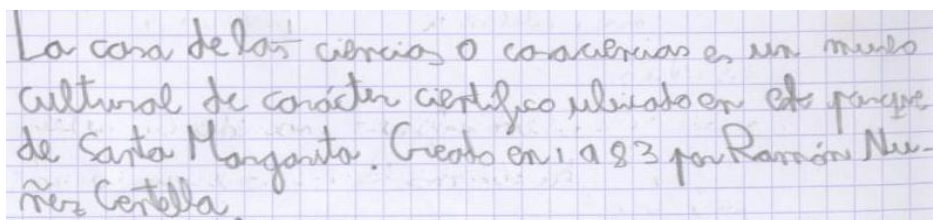 La casa de las ciencias o casaciencias es un museo
cultural de carácter científico ubicado en este parque
de Santa Margarita. Creado en 1983 por Ramón Nu-
ñez Centella.